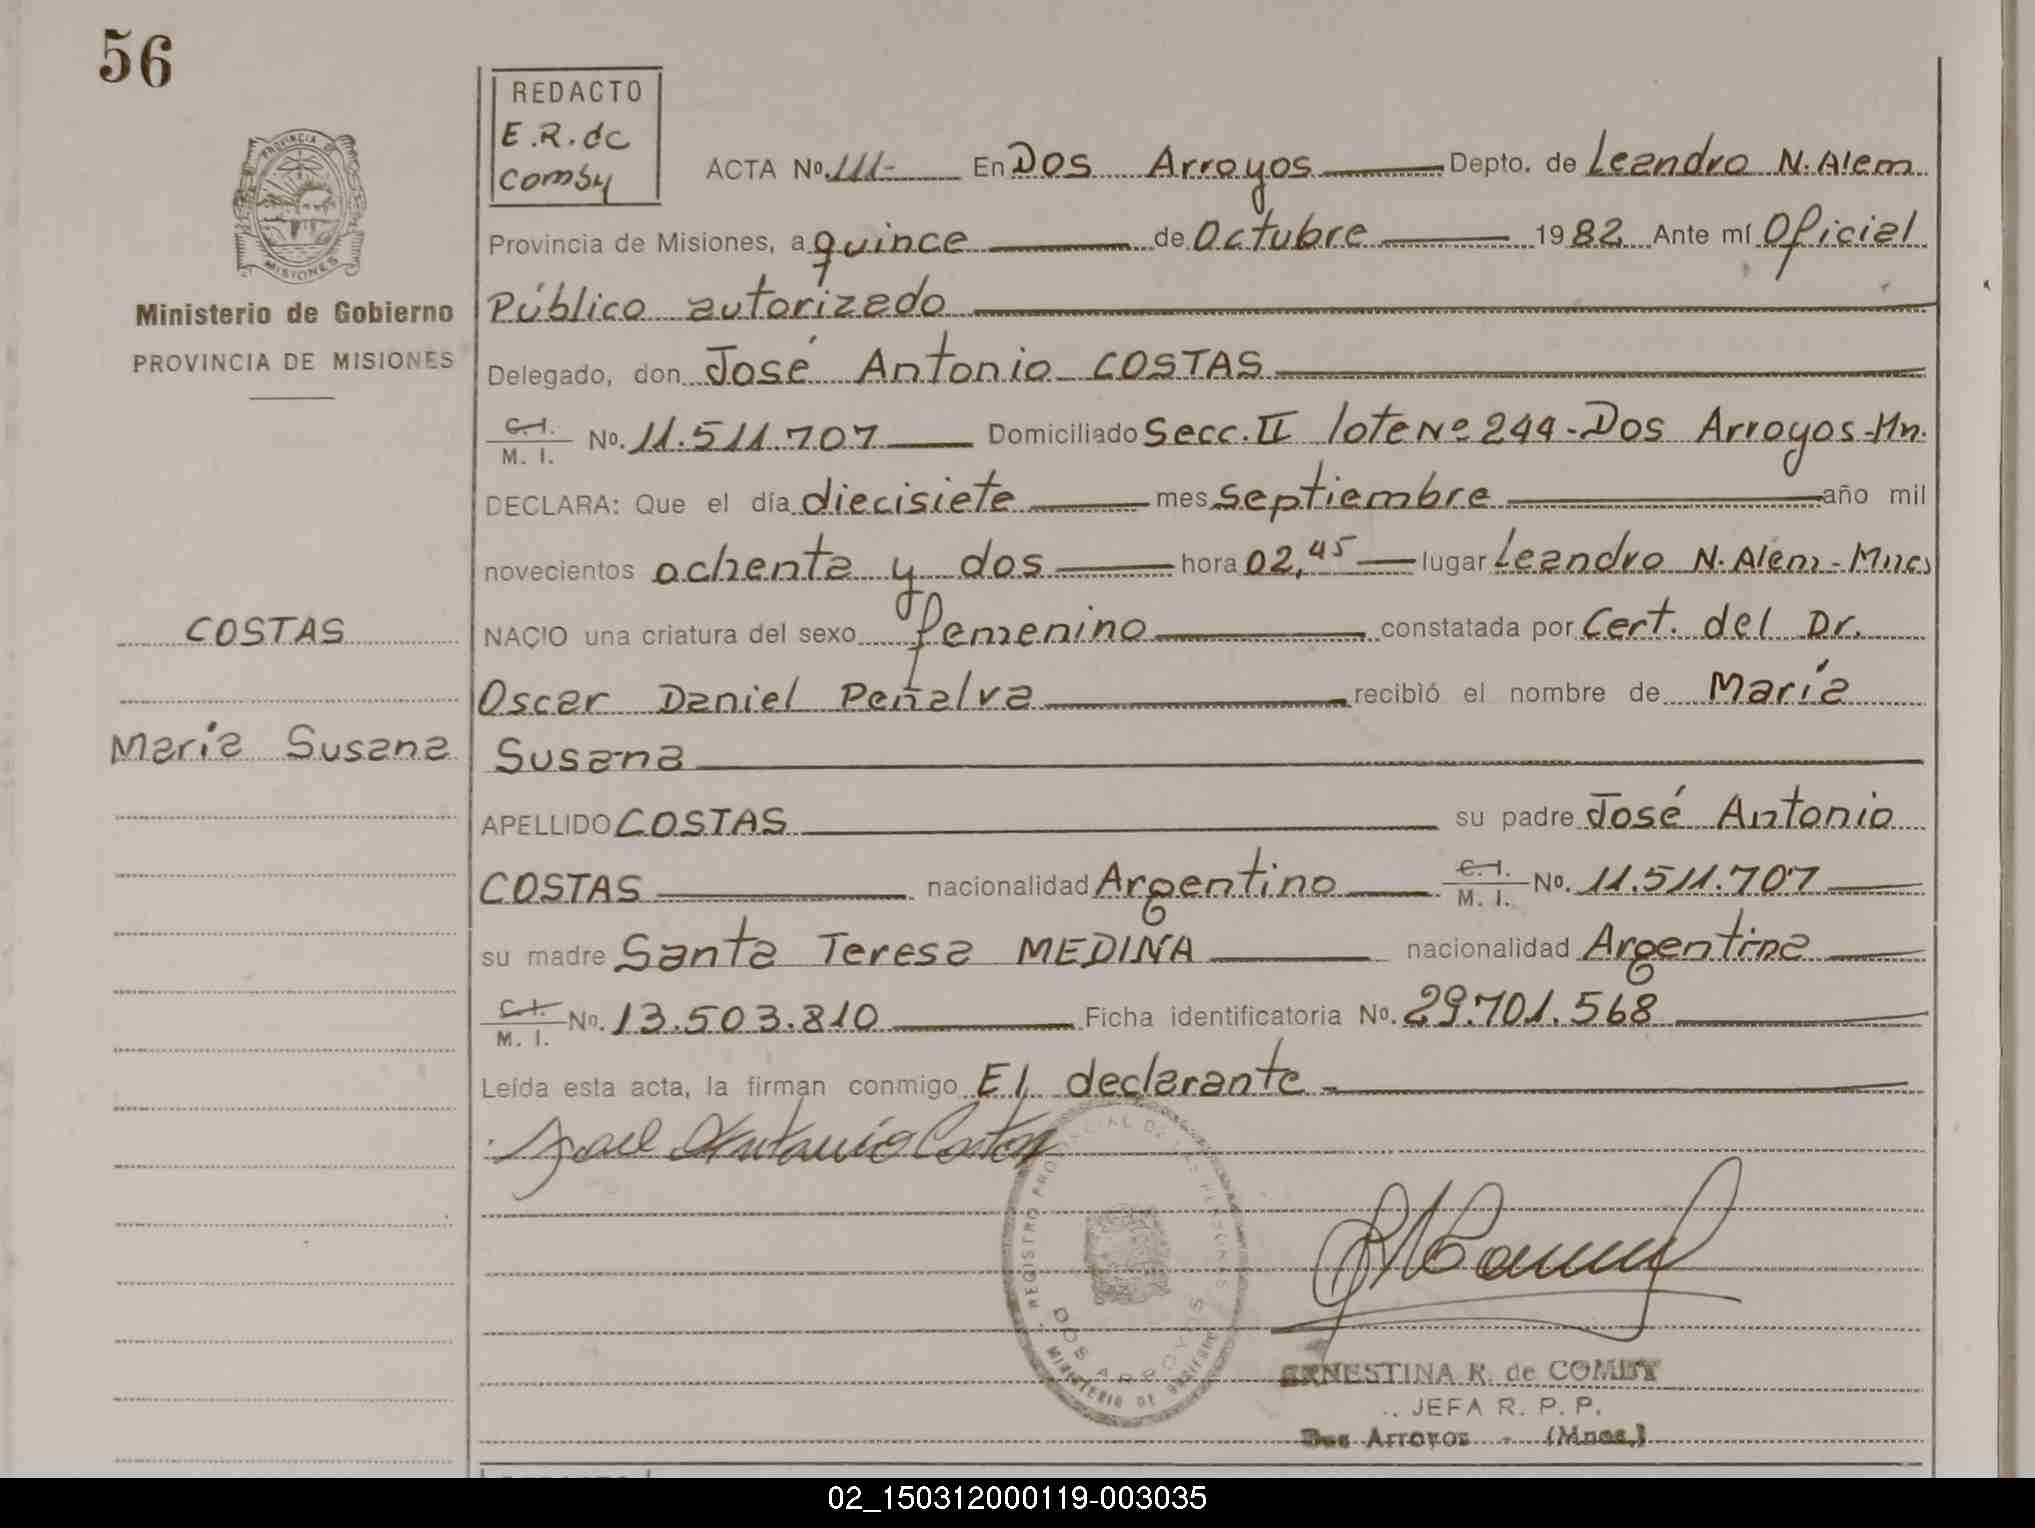 56
REDACTO
E.R.de
Comby
ACTA No. 111- En Dos Arroyos Depto. de Leandro N. Alem
PROVINCIA DE
MISIONES
Provincia de Misiones, a quince de Octubre 1982 Ante mí Oficial
Ministerio de Gobierno
PROVINCIA DE MISIONES
Público autorizado
Delegado, don José Antonio COSTAS
C.I.
M. I. No. 11.511.707 Domiciliado Secc. II lote Nº 244-Dos Arroyos-Mn.
DECLARA: Que el día diecisiete mes septiembre año mil
novecientos ochenta y dos hora 02,45 lugar Leandro N. Alem-Mnes
COSTAS
NACIO una criatura del sexo femenino constatada por Cert. del Dr.
Oscar Daniel Peñalva recibió el nombre de María
María Susana
Susana
APELLIDO COSTAS su padre José Antonio
COSTAS nacionalidad Argentino C.I. M. I. No. 11.511.707
su madre Santa Teresa MEDINA nacionalidad Argentina
C.I.
M. I. No. 13.503.810 Ficha identificatoria No. 29.701.568
Leída esta acta, la firman conmigo El declarante
Antonio Costas
REGISTRO PROVINCIAL DE LAS PERSONAS
DOS ARROYOS
MINISTERIO DE GOBIERNO
ERNESTINA R. de COMBY
JEFA R. P. P.
Dos Arroyos - (Mnes.)
02_150312000119-003035